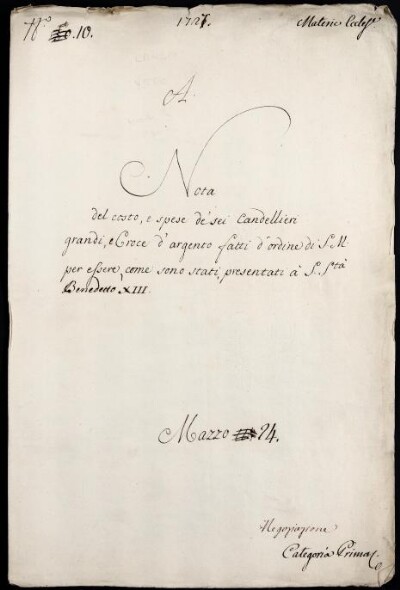 N.º 10.
1727.
Materie Eccles.
A
Nota
del costo, e spese de' sei Candellieri
grandi, e Croce d'argento fatti d'ordine di S. M.
per essere, come sono stati, presentati à S. Stà
Benedetto XIII.
Mazzo 24.
Negoziazione
Categoria Prima